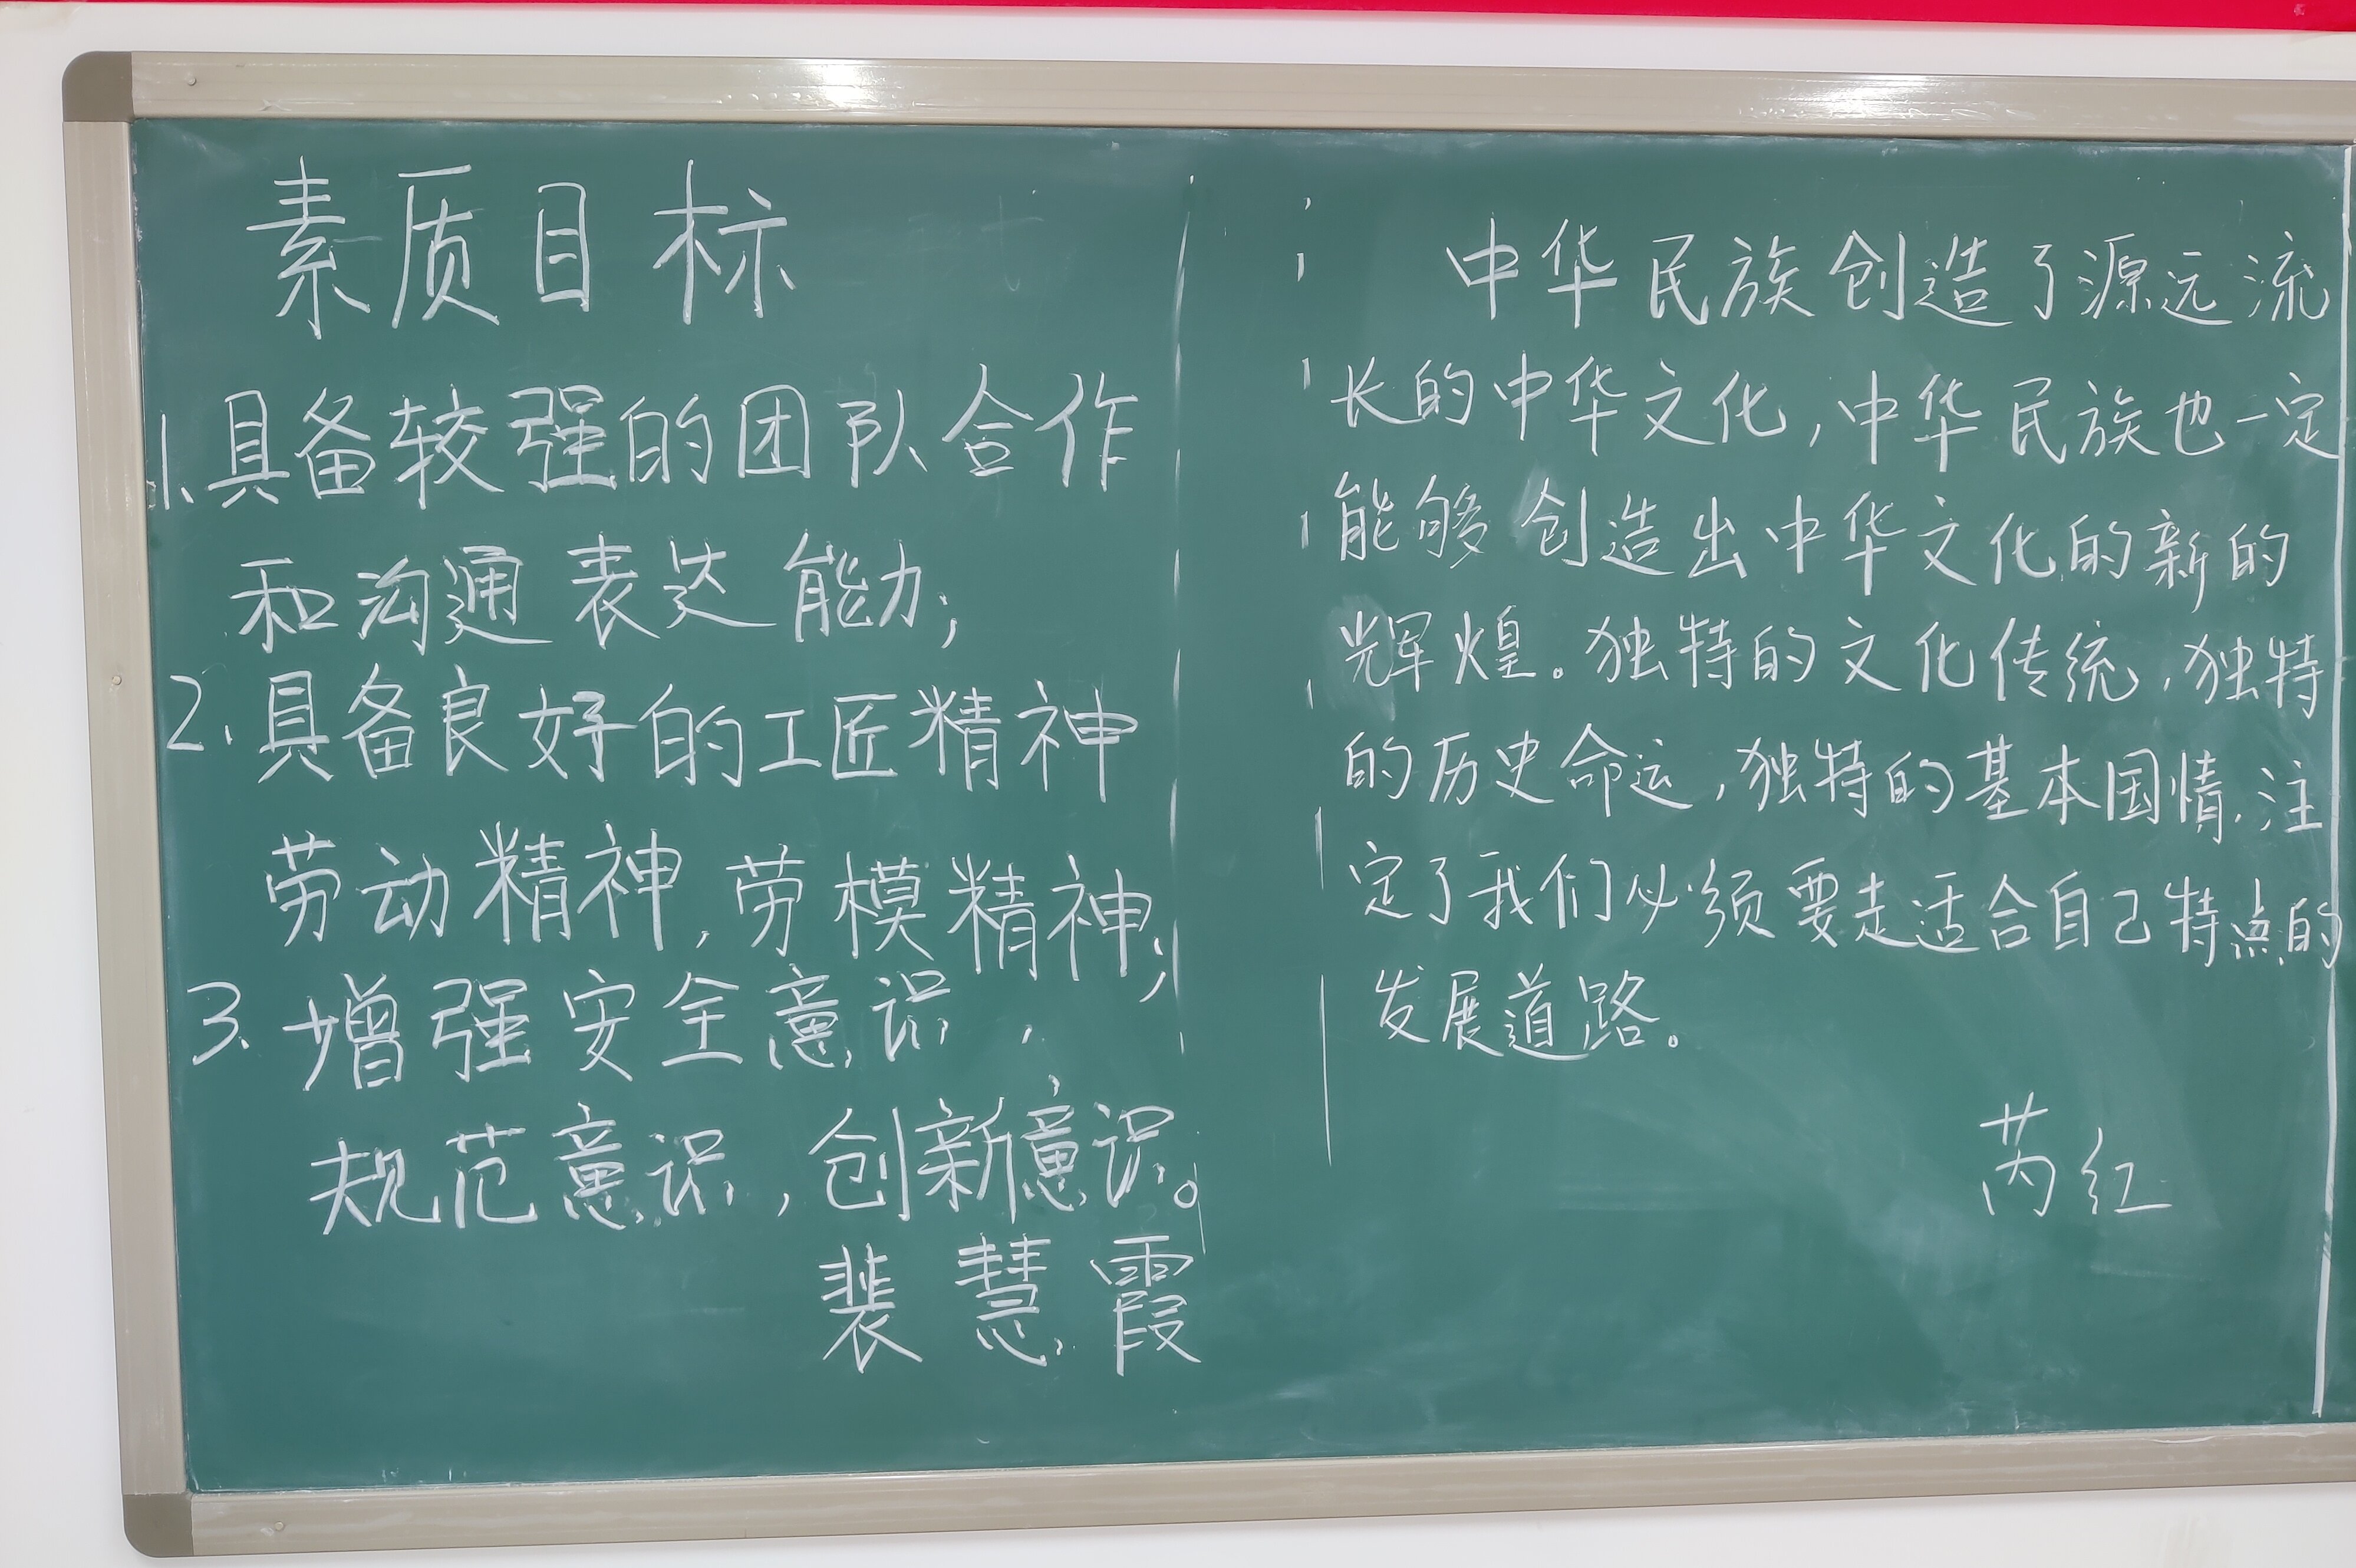 素质目标
1.具备较强的团队合作
和沟通表达能力;
2.具备良好的工匠精神
劳动精神,劳模精神;
3.增强安全意识,
规范意识,创新意识。
裴慧霞
中华民族创造了源远流
长的中华文化,中华民族也一定
能够创造出中华文化的新的
辉煌。独特的文化传统,独特
的历史命运,独特的基本国情,注
定了我们必须要走适合自己特点的
发展道路。
芮红